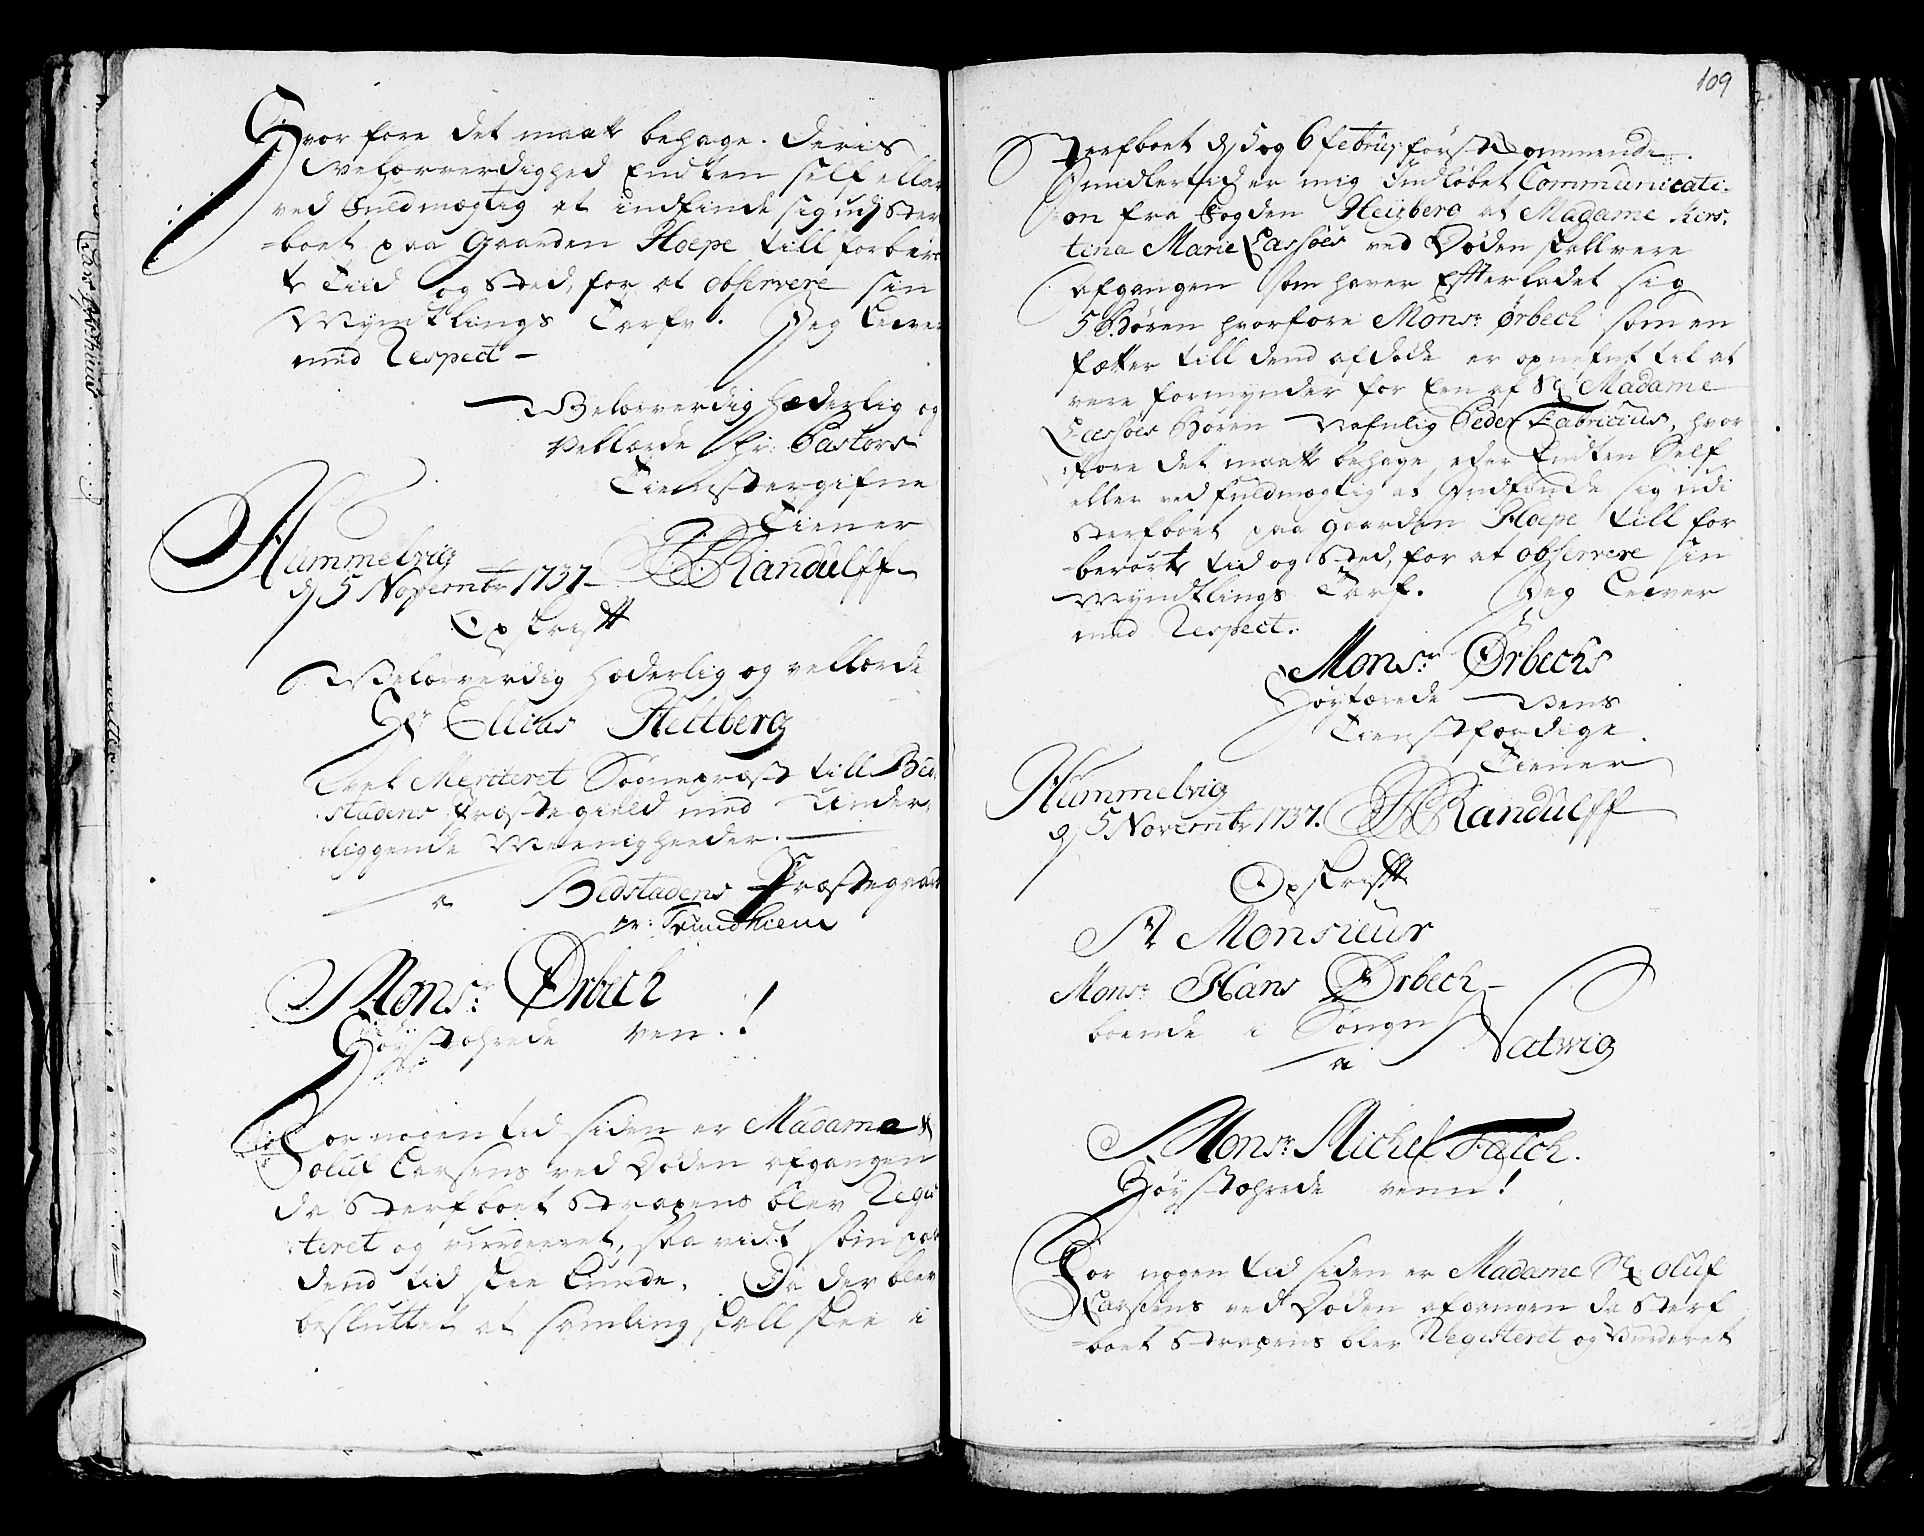 Hvor fore det maatte behage. Deris
Velærværdighed Endten self eller
ved Fuldmægtig at indfinde sig udj Ster
=boet paa Gaarden Hoepe till forberør
te Tiid og Sted, for at observere sin
Myndtlings Tarfv. Jeg Lever
med Respect –
Velærverdig hæderlig og
Vellærde Hr: Pastors
Tienstergifne
Tiener
Hummelvig
d 5 Novembr 1737 – Randulff
Opskrifft
Velærværdig hæderlig og vellærde
Hr Ellias Hellberg
vel Meriteret Sogneprest till Bed,
stadens Præstegield med Under,
liggende Meenigheeder. –
a Bedstadens Præstegaard
pr: Trundhiem
Monsr. Ørbech
Høystærede ven.!
For nogen tid siden er Madame Sl
oluf Larsens ved Døden afgangen
da Sterfboet Straxens blev Regis
teret og vurderet, saa vidt som paa
dend tid skee kunde. Da der blev
besluttet at samling skall skee i
109
Sterfboet d 5 og 6 februj: førstkommende.
Imidlertid er mig Indløbet Communicati-
on fra Fogden Heijberg at Madame Kirs,
tina Marie Lassøes ved Døden skall vere
afgangen som haver Efterladet sig
5 Børen hvorfore Monsr Ørbech som en
fætter till dend afdøde er opnefnt til at
vere formynder for Een af Sl Madame
Lassøes Børen Nafnlig Peder Fabricius, hvor
fore det maatte behage, eder Endten Self
eller ved fuldmægtig at Indfinde sig udi
Sterfboet paa gaarden Hoepe till for
=berørte tid og Sted, for at observere sin
Myndtlings Tarf. Jeg Lever
med Respect.
Monsr Ørbechs
Høytærede Vens
Tienstfærdige
Tiener
Hummelvig
d 5 Novembr 1737. Randulff
Opskrifft
Sr Monsieur
Monsr Hans Ørbech –
boende i Songn
a Natwig
Monsr Michel Falch.
Høystærede venn!
For nogen tid siden er Madame Sl: oluf
Larsens ved Døden afgangen da Sterf
=boet Straxens blev Registeret og Vurderet